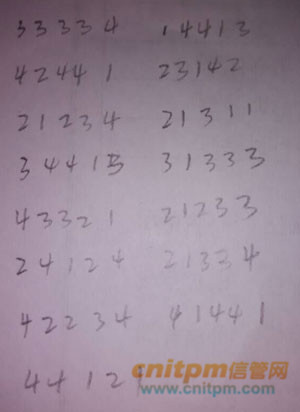 3 3 3 3 4 1 4 4 1 3
4 2 4 4 1 2 3 1 4 2
2 1 2 3 4 2 1 3 1 1
3 4 4 1 3 1 3 3 3
4 3 3 2 1 2 1 2 3 3
2 4 1 2 4 2 1 3 3 4
4 2 2 3 4 4 1 4 4 1
4 4 1 2
cnitpm信管网
www.cnitpm.com